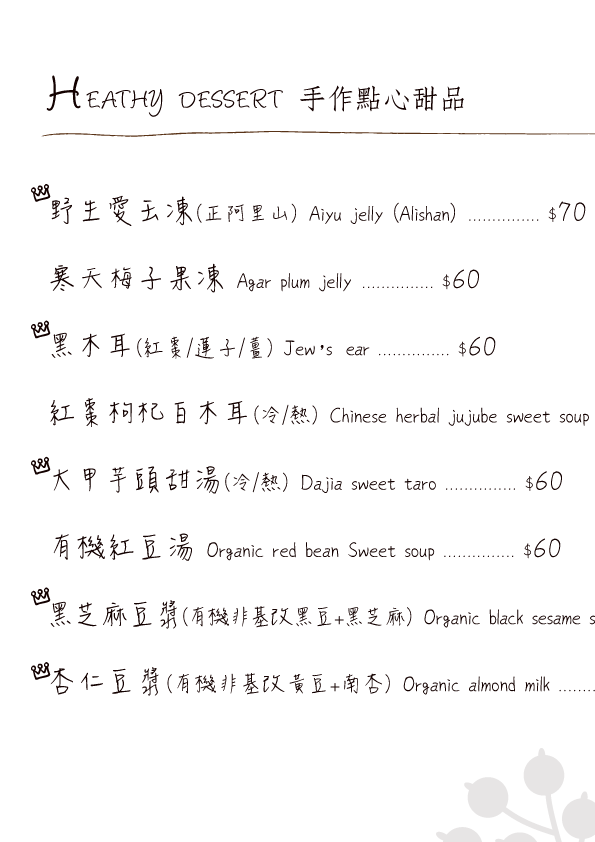 HEATHY DESSERT 手作點心甜品
野生愛玉凍(正阿里山) Aiyu jelly (Alishan) ............... $70
寒天梅子果凍 Agar plum jelly ............... $60
黑木耳(紅棗/蓮子/薑) Jew's ear ............... $60
紅棗枸杞百木耳(冷/熱) Chinese herbal jujube sweet soup
大甲芋頭甜湯(冷/熱) Dajia sweet taro ............... $60
有機紅豆湯 Organic red bean Sweet soup ............... $60
黑芝麻豆漿(有機非基改黑豆+黑芝麻) Organic black sesame s
杏仁豆漿(有機非基改黃豆+南杏) Organic almond milk ........